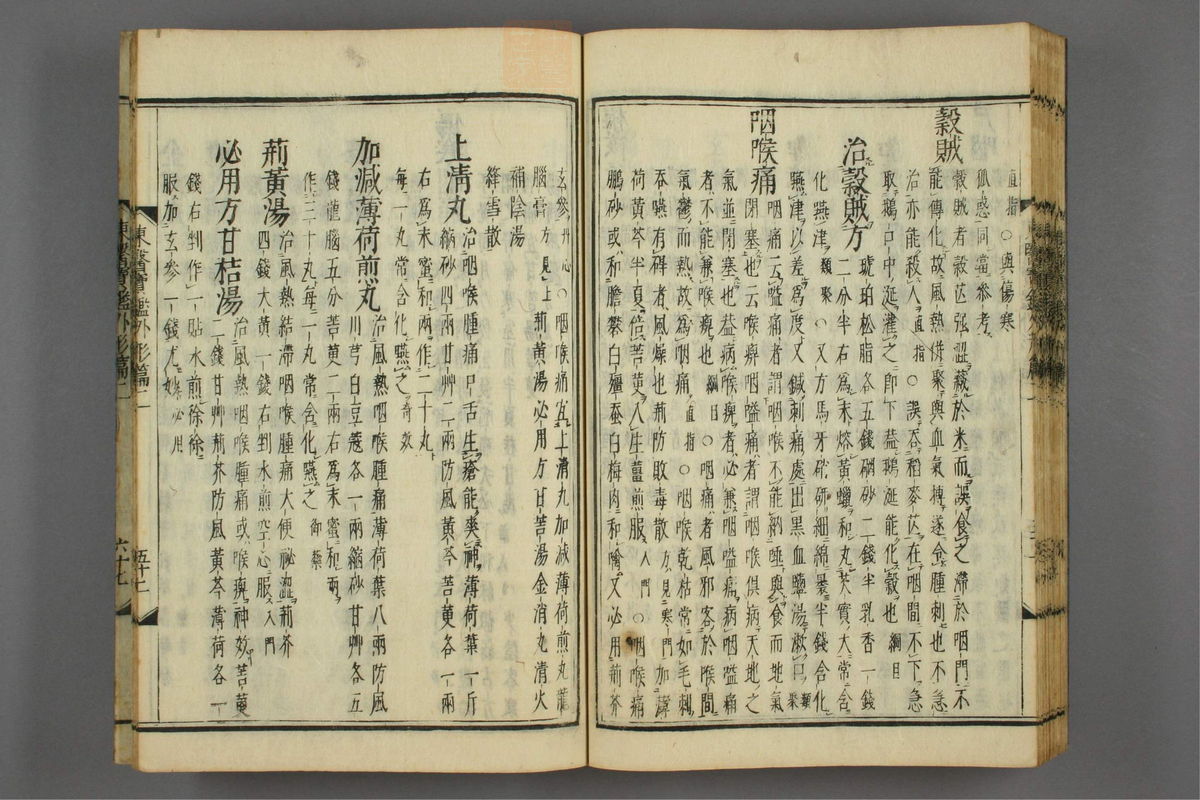 直指○與傷寒
狐惑同當參考
穀賊
穀賊者穀芒强澀藏於米而誤食之滯於咽門不
能傳化故風熱倂聚與血氣搏遂令腫刺也不急
治亦能殺人直指○誤吞稻麥芒在咽間不下急
取鵝口中涎灌之卽下蓋鵝涎能化穀也綱目
治穀賊方
琥珀松脂各五錢硼砂二錢半乳香一錢
二分半右爲末熔黃蠟和丸芡實大常含
化嚥津類聚○又方馬牙硝硏細綿裹半錢含化
嚥津以差爲度又鍼刺痛處出黑血鹽湯漱口類聚
咽喉痛
咽痛云嗌痛者謂咽喉不能納唾與食而地氣
閉塞也云喉痺咽嗌痛者謂咽喉俱病天地之
氣並閉塞也蓋病喉痺者必兼咽嗌痛病咽嗌痛
者不能兼喉痺也綱目○咽痛者風邪客於喉間
氣鬱而熱故爲咽痛直指○咽喉乾枯常如毛刺
吞嚥有碍者風燥也荊防敗毒散方見寒門加薄
荷黃芩半夏倍苦黃入生薑煎服入門○咽喉痛
鵬砂或和膽礬白殭蚕白梅肉和噙又必用荊芥
玄參升心○咽喉痛宜上淸丸加減薄荷煎丸龍
腦膏方見上荊黃湯必用方甘苦湯金消丸淸火
補陰湯
絳雪散
上淸丸
治咽喉腫痛口舌生瘡能爽神薄荷葉一斤
縮砂四兩甘艸一兩防風黃芩苦莄各一兩
右爲末蜜和兩作二十丸
每一丸常含化嚥之奇效
加減薄荷煎丸
治風熱咽喉腫痛薄荷葉八兩防風
川芎白豆蔻各一兩縮砂甘艸各五
錢龍腦五分苦莄二兩右爲末蜜和兩
作三十丸每一丸常含化嚥之御藥
荊黃湯
治風熱結滯咽喉腫痛大便祕澀荊芥
四錢大黃一錢右剉水煎空心服入門
必用方甘桔湯
治風熱咽喉腫痛或喉痺神效苦莄
二錢甘艸荊芥防風黃芩薄荷各一
錢右剉作一貼水煎徐徐
服加玄參一錢尤妙必用
東醫寶鑑外形篇二
五十七
六十七